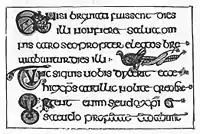 nisi breuiati fuissent dies
illi non fieret salua om
nis caro sed propter electos bre
uiabuntur dies illi
Tunc siquis uobis dixerit ecce
hic xps aut illic nolite crede
gent enim seudoxpi
seudo prophetae